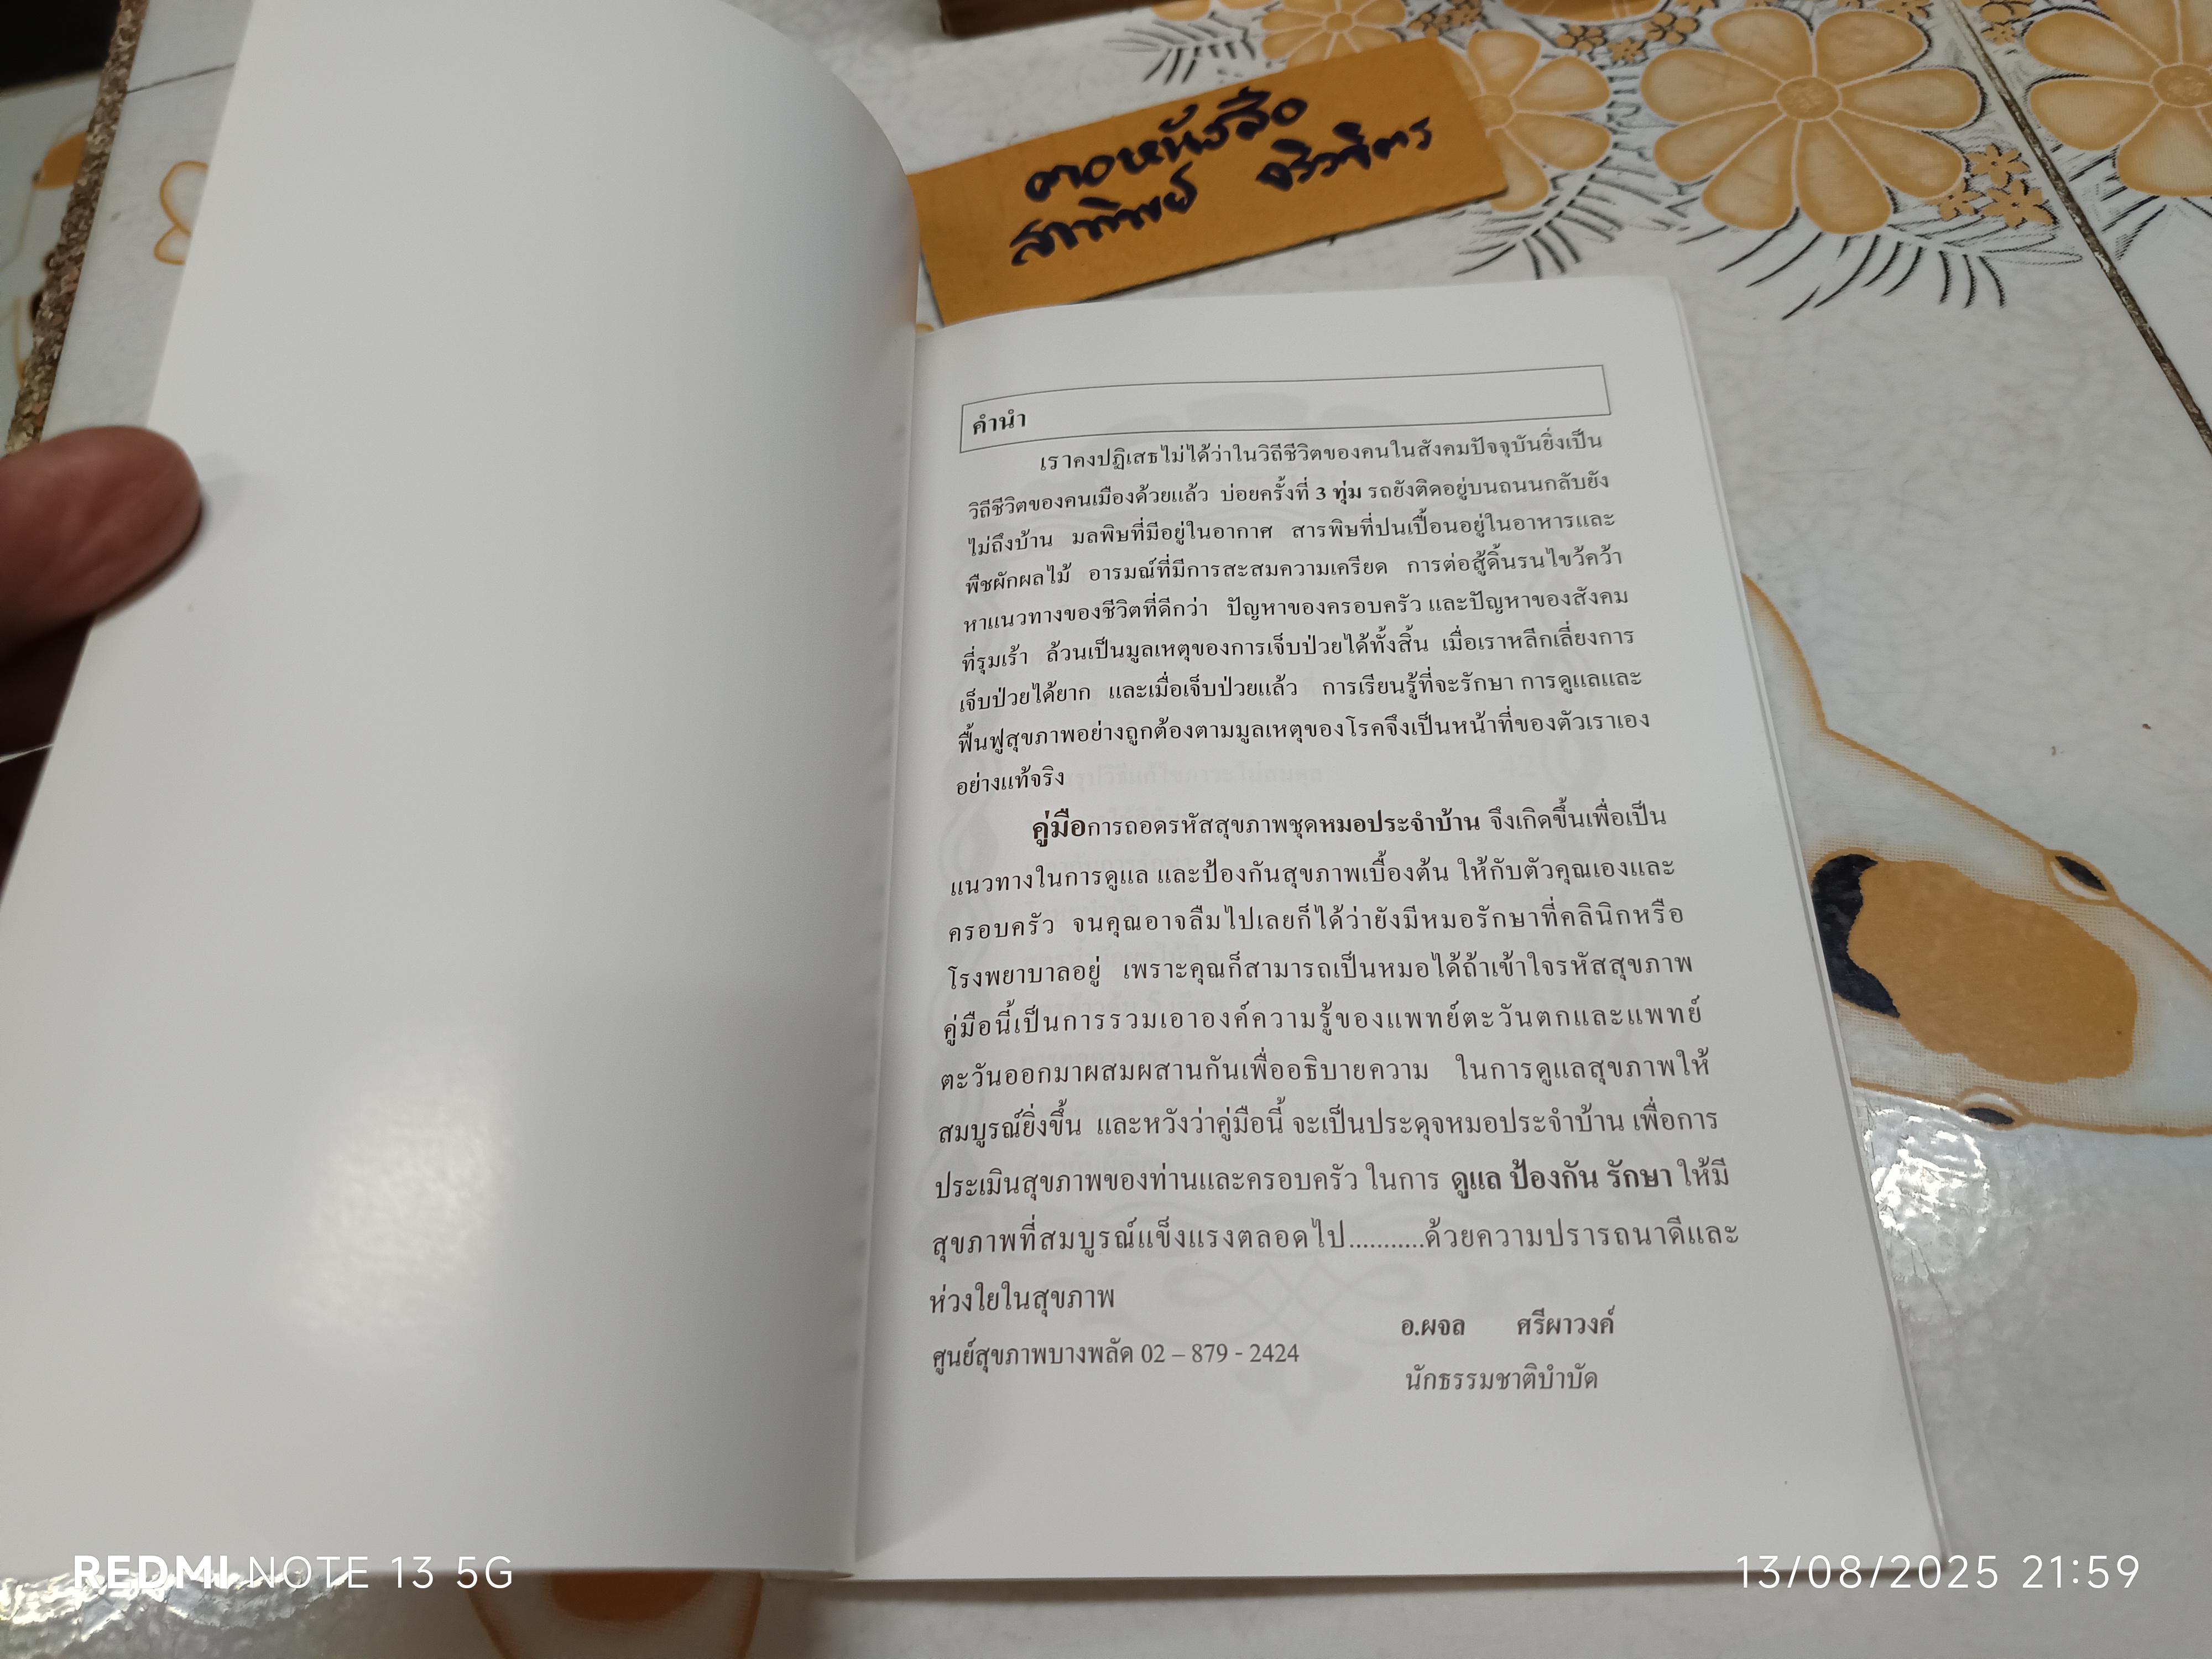 คอหนังสือ
คำนำ
เราคงปฏิเสธไม่ได้ว่าในวิถีชีวิตของคนในสังคมปัจจุบันยิ่งเป็น
วิถีชีวิตของคนเมืองด้วยแล้ว บ่อยครั้งที่ 3 ทุ่ม รถยังติดอยู่บนถนนกลับยัง
ไม่ถึงบ้าน มลพิษที่มีอยู่ในอากาศ สารพิษที่ปนเปื้อนอยู่ในอาหารและ
พืชผักผลไม้ อารมณ์ที่มีการสะสมความเครียด การต่อสู้ดิ้นรนไขว้คว้า
หาแนวทางของชีวิตที่ดีกว่า ปัญหาของครอบครัว และปัญหาของสังคม
ที่รุมเร้า ล้วนเป็นมูลเหตุของการเจ็บป่วยได้ทั้งสิ้น เมื่อเราหลีกเลี่ยงการ
เจ็บป่วยได้ยาก และเมื่อเจ็บป่วยแล้ว การเรียนรู้ที่จะรักษา การดูแลและ
ฟื้นฟูสุขภาพอย่างถูกต้องตามมูลเหตุของโรคจึงเป็นหน้าที่ของตัวเราเอง
อย่างแท้จริง
คู่มือการถอดรหัสสุขภาพชุดหมอประจำบ้าน จึงเกิดขึ้นเพื่อเป็น
แนวทางในการดูแล และป้องกันสุขภาพเบื้องต้น ให้กับตัวคุณเองและ
ครอบครัว จนคุณอาจลืมไปเลยก็ได้ว่ายังมีหมอรักษาที่คลินิกหรือ
โรงพยาบาลอยู่ เพราะคุณก็สามารถเป็นหมอได้ถ้าเข้าใจรหัสสุขภาพ
คู่มือนี้เป็นการรวมเอาองค์ความรู้ของแพทย์ตะวันตกและแพทย์
ตะวันออกมาผสมผสานกันเพื่ออธิบายความ ในการดูแลสุขภาพให้
สมบูรณ์ยิ่งขึ้น และหวังว่าคู่มือนี้ จะเป็นประดุจหมอประจำบ้าน เพื่อการ
ประเมินสุขภาพของท่านและครอบครัว ในการ ดูแล ป้องกัน รักษา ให้มี
สุขภาพที่สมบูรณ์แข็งแรงตลอดไป...........ด้วยความปรารถนาดีและ
ห่วงใยในสุขภาพ
อ.ผจล ศรีผาวงค์
ศูนย์สุขภาพบางพลัด 02 – 879 - 2424
นักธรรมชาติบำบัด
REDMI NOTE 13 5G
13/08/2025 21:59